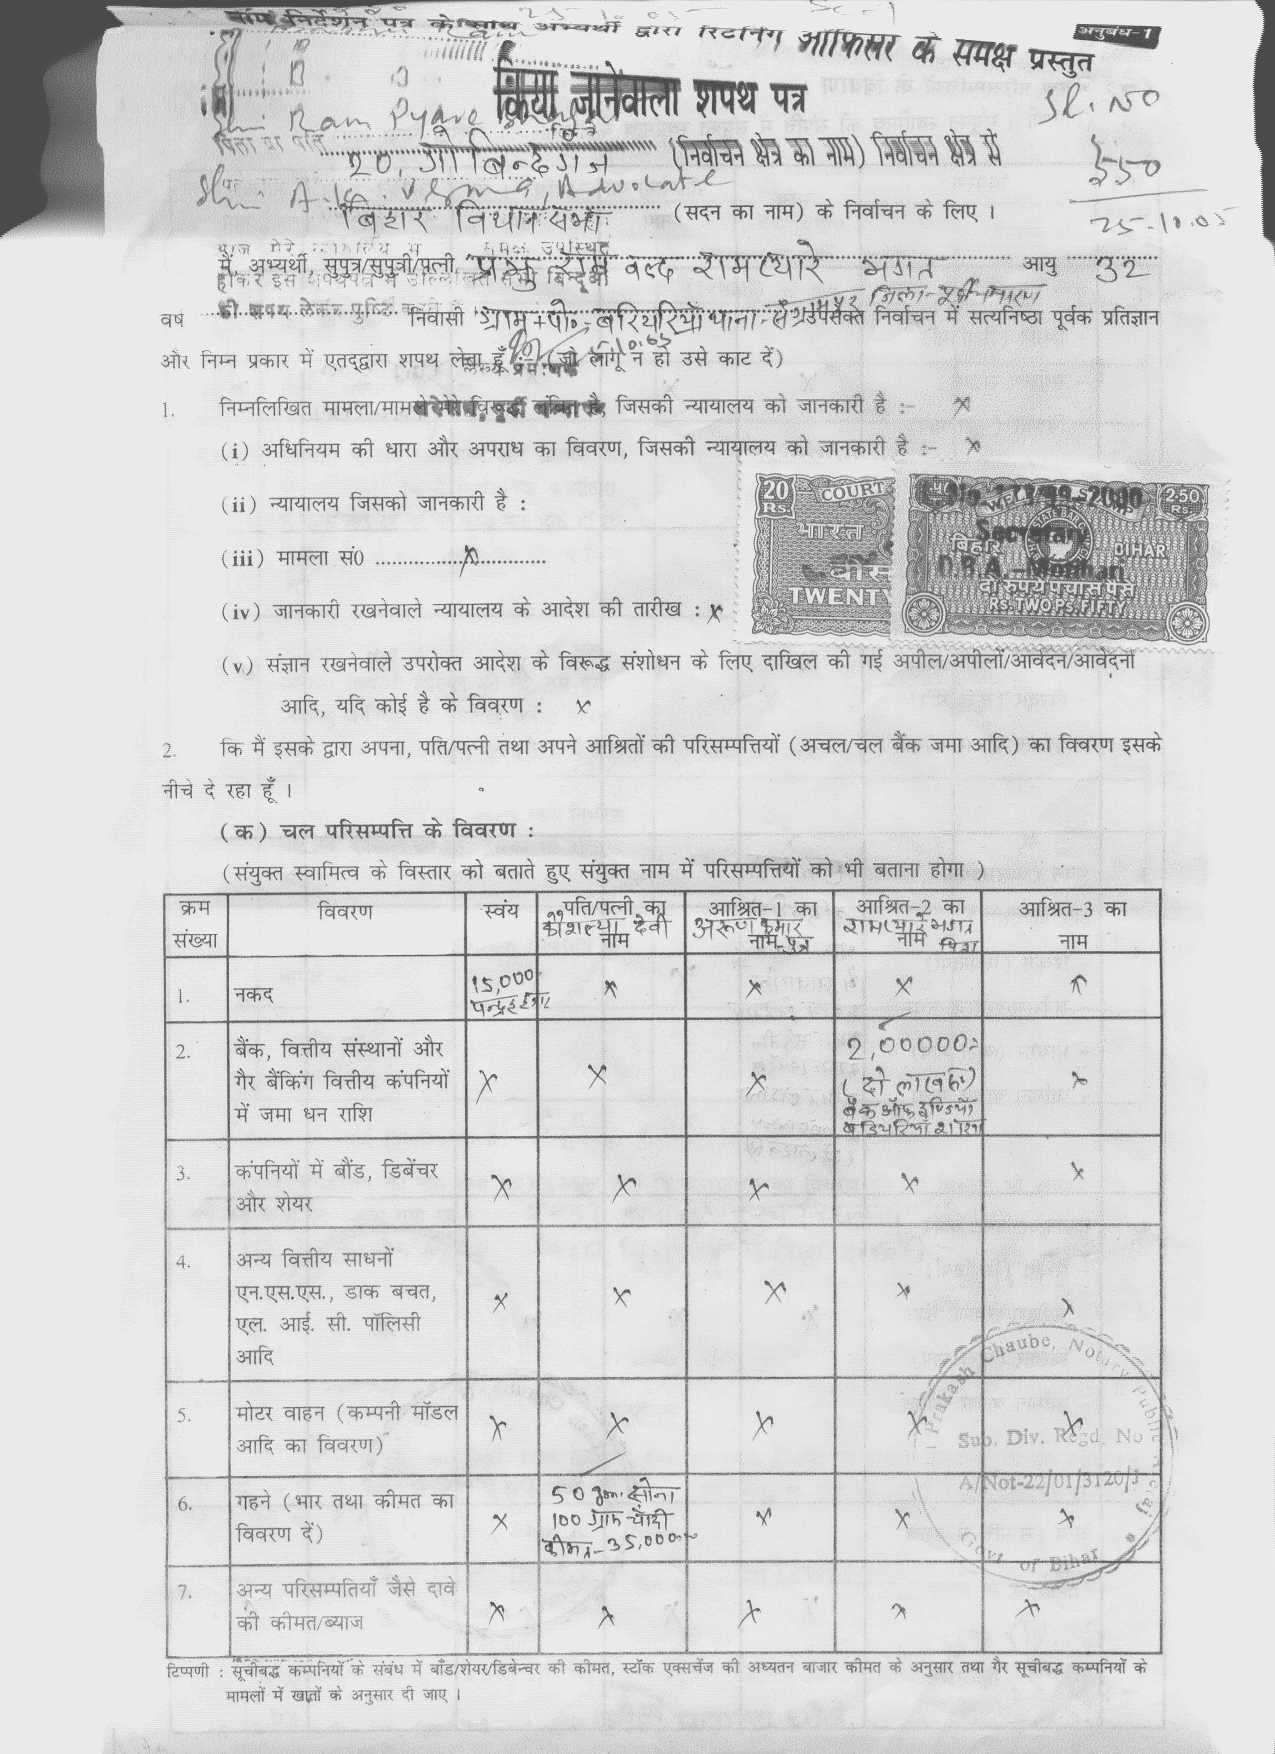 निर्देशन पत्र के साथ अभ्यर्थी द्वारा रिटर्निंग आफिसर के समक्ष प्रस्तुत
अनुबंध-1
किया जानेवाला शपथ पत्र
Sl. No
550
25-10.05
Shri Ram Pyare
20, गोबिन्दगंज (निर्वाचन क्षेत्र का नाम) निर्वाचन क्षेत्र से
Shri A.K. Verma, Advocate
बिहार विधान सभा (सदन का नाम) के निर्वाचन के लिए ।
मैं, अभ्यर्थी, सुपुत्र/सुपुत्री/पत्नी, प्रभु राम वल्द रामप्यारे भगत आयु 32
जिला-
वर्ष निवासी ग्राम+पो०-बरियरिया थाना-संग्रामपुर उपरोक्त निर्वाचन में सत्यनिष्ठा पूर्वक प्रतिज्ञान
और निम्न प्रकार में एतद्द्वारा शपथ लेता हूँ :- (जो लागू न हो उसे काट दें)
1. निम्नलिखित मामला/मामले मेरे विरूद्ध लंबित है, जिसकी न्यायालय को जानकारी है :- x
(i) अधिनियम की धारा और अपराध का विवरण, जिसकी न्यायालय को जानकारी है :- x
(ii) न्यायालय जिसको जानकारी है :
(iii) मामला सं0 ........x........
(iv) जानकारी रखनेवाले न्यायालय के आदेश की तारीख : x
20 Rs. COURT
भारत
बीस
TWENTY
2.50 Rs.
Secretary
बिहार BIHAR
D.B.A.-Motihari
दो रूपये पचास पैसे
RS. TWO PS. FIFTY
(v) संज्ञान रखनेवाले उपरोक्त आदेश के विरूद्ध संशोधन के लिए दाखिल की गई अपील/अपीलों/आवेदन/आवेदनों
आदि, यदि कोई है के विवरण : x
2. कि मैं इसके द्वारा अपना, पति/पत्नी तथा अपने आश्रितों की परिसम्पत्तियों (अचल/चल बैंक जमा आदि) का विवरण इसके
नीचे दे रहा हूँ ।
(क) चल परिसम्पत्ति के विवरण :
(संयुक्त स्वामित्व के विस्तार को बताते हुए संयुक्त नाम में परिसम्पत्तियों को भी बताना होगा )
क्रम संख्या विवरण स्वंय पति/पत्नी का नाम कौशल्या देवी आश्रित-1 का नाम अरूण कुमार पुत्र आश्रित-2 का नाम रामप्यारे भगत पिता आश्रित-3 का नाम
1. नकद 15,000 पन्द्रह हजार x x x x
2. बैंक, वित्तीय संस्थानों और x x x 2,00000=
गैर बैंकिंग वित्तीय कंपनियों (दो लाख रू०) x
में जमा धन राशि बैंक ऑफ इण्डिया
शाखा
3. कंपनियों में बौंड, डिबेंचर x x x x x
और शेयर
4. अन्य वित्तीय साधनों
एन.एस.एस., डाक बचत, x x x x x
एल. आई. सी. पॉलिसी
आदि
5. मोटर वाहन (कम्पनी मॉडल x x x x x
आदि का विवरण)
6. गहने (भार तथा कीमत का x 50 gm. सोना x x x
विवरण दें) 100 ग्राम चाँदी
कीमत-35,000=
7. अन्य परिसम्पतियाँ जैसे दावे x x x x x
की कीमत/ब्याज
Prakash Chaube, Notary Public
Sub. Div. Regd. No
A/Not-22/01/3120/J
Govt. of Bihar
टिप्पणी : सूचीबद्ध कम्पनियों के संबंध में बाँड/शेयर/डिबेन्चर की कीमत, स्टॉक एक्सचेंज की अध्यतन बाजार कीमत के अनुसार तथा गैर सूचीबद्ध कम्पनियों के
मामलों में खातों के अनुसार दी जाए ।